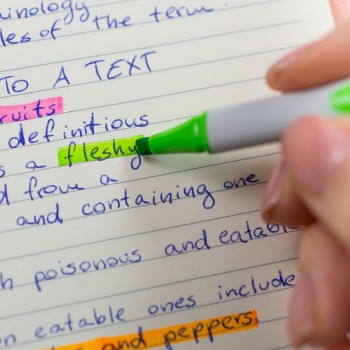 les of the term.
TO A TEXT
definitious
s a fleshy
d from a
and containing one
poisonous and eatable
eatable ones include
and peppers.